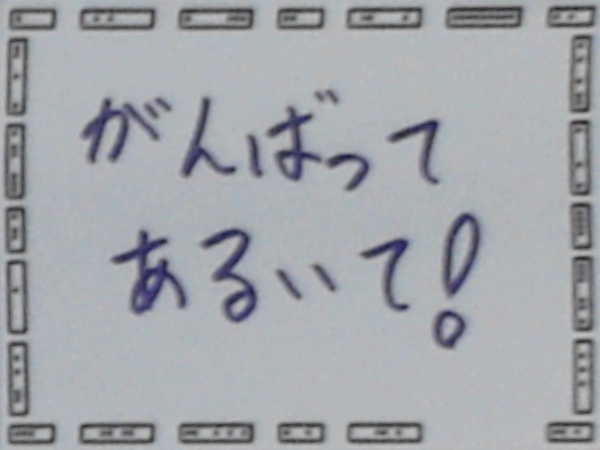 がんばって
あるいて!